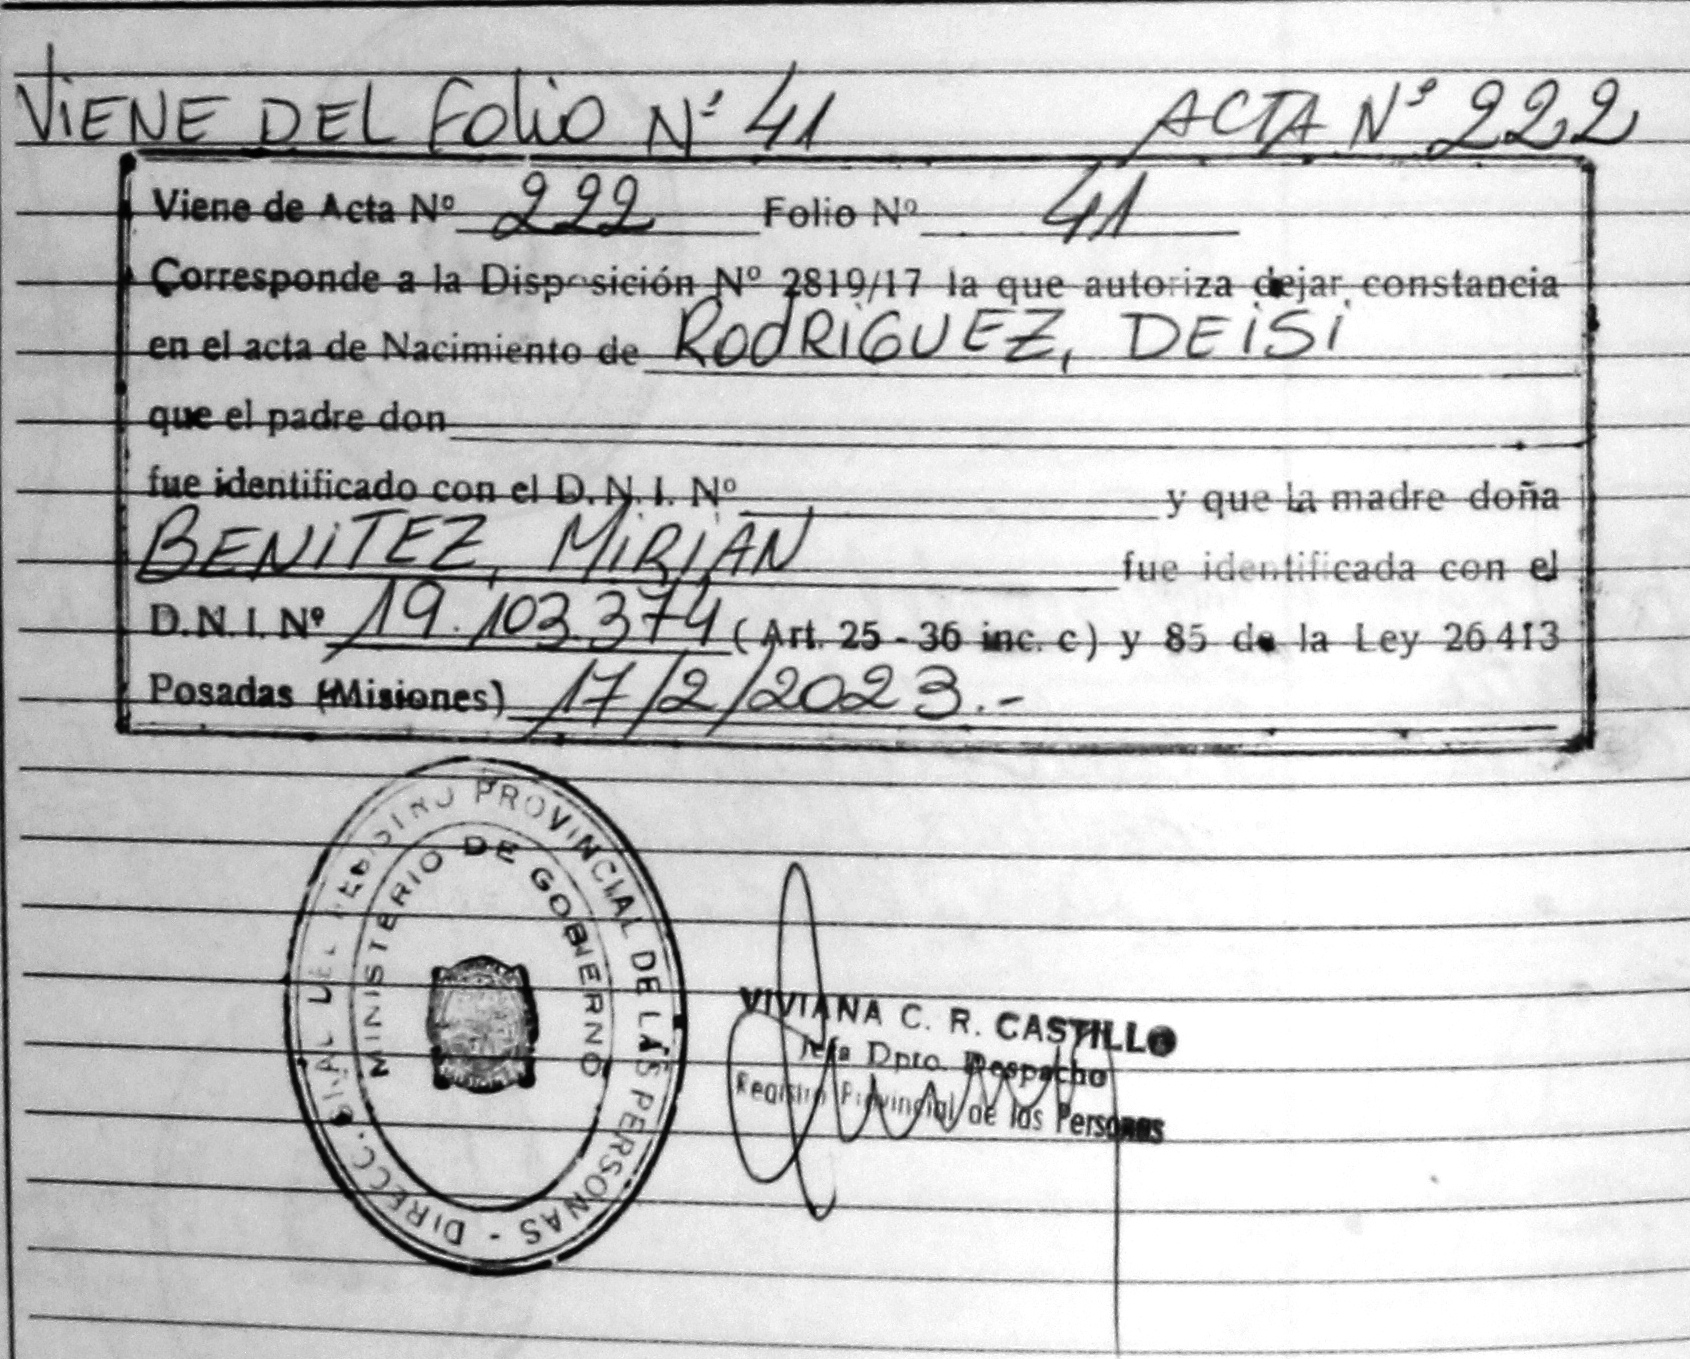 VIENE DEL FOLIO Nº 41 ACTA Nº 222
Viene de Acta Nº 222 Folio Nº 41
Corresponde a la Disposición Nº 2819/17 la que autoriza dejar constancia
en el acta de Nacimiento de RODRIGUEZ, DEISI
que el padre don
fue identificado con el D.N.I. Nº y que la madre doña
BENITEZ, MIRIAN fue identificada con el
D.N.I. Nº 19.103.374 (Art. 25 - 36 inc. c) y 85 de la Ley 26413
Posadas (Misiones) 17/2/2023.-
DIRECC. GRAL DEL REGISTRO PROVINCIAL DE LAS PERSONAS -
MINISTERIO DE GOBIERNO
VIVIANA C. R. CASTILLO
Jefa Dpto. Despacho
Registro Provincial de las Personas